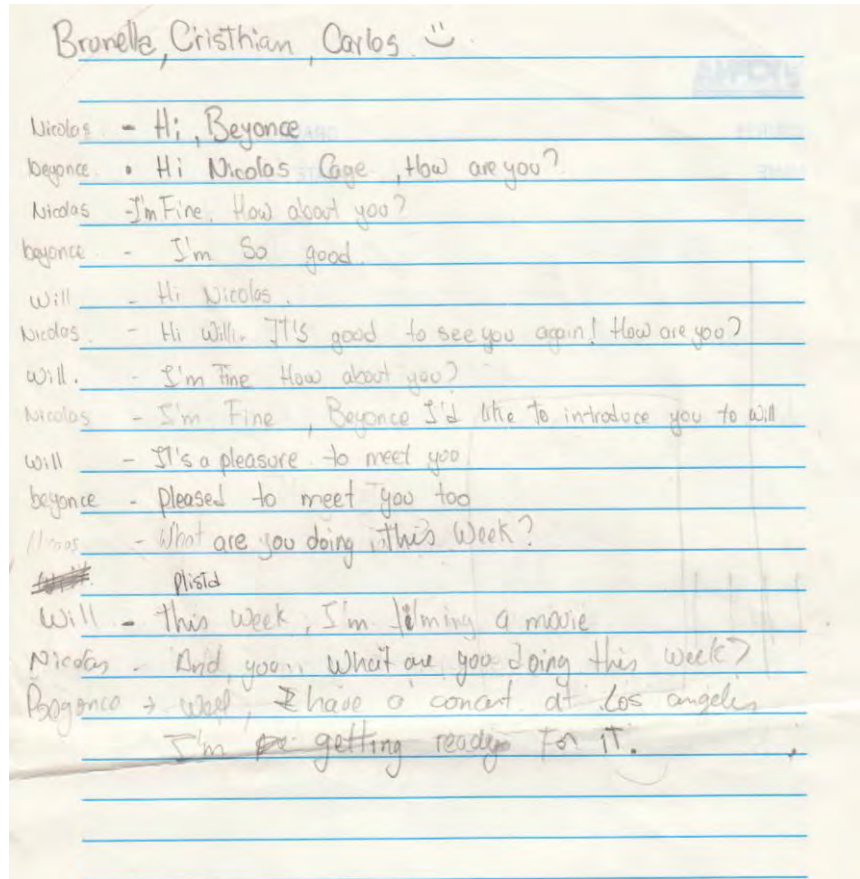 Brunella, Cristhian, Carlos.
Nicolas - Hi, Beyonce
beyonce. • Hi Nicolas Cage, How are you?
Nicolas - I'm Fine, How about you?
beyonce - I'm So good.
Will - Hi Nicolas.
Nicolas. - Hi Will. IT'S good to see you again! How are you?
Will. - I'm Fine How about you?
Nicolas - I'm Fine, Beyonce I'd like to introduce you to Will
Will - IT's a pleasure to meet you
beyonce - pleased to meet you too
- What are you doing this Week?
plistd
Will - this week, I'm filming a movie
Nicolas - And you.. What are you doing this week?
I have a concert at Los angeles
I'm getting ready for it.